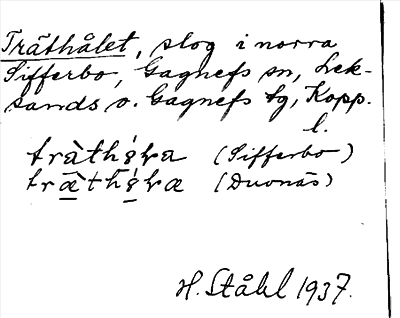 Träthålet, slog i norra
Sifferbo, Gagnefs sn, Lek-
sands o. Gagnefs tg, Kopp.
l.
(Sifferbo)
(Duvnäs)
H. Ståhl 1937.